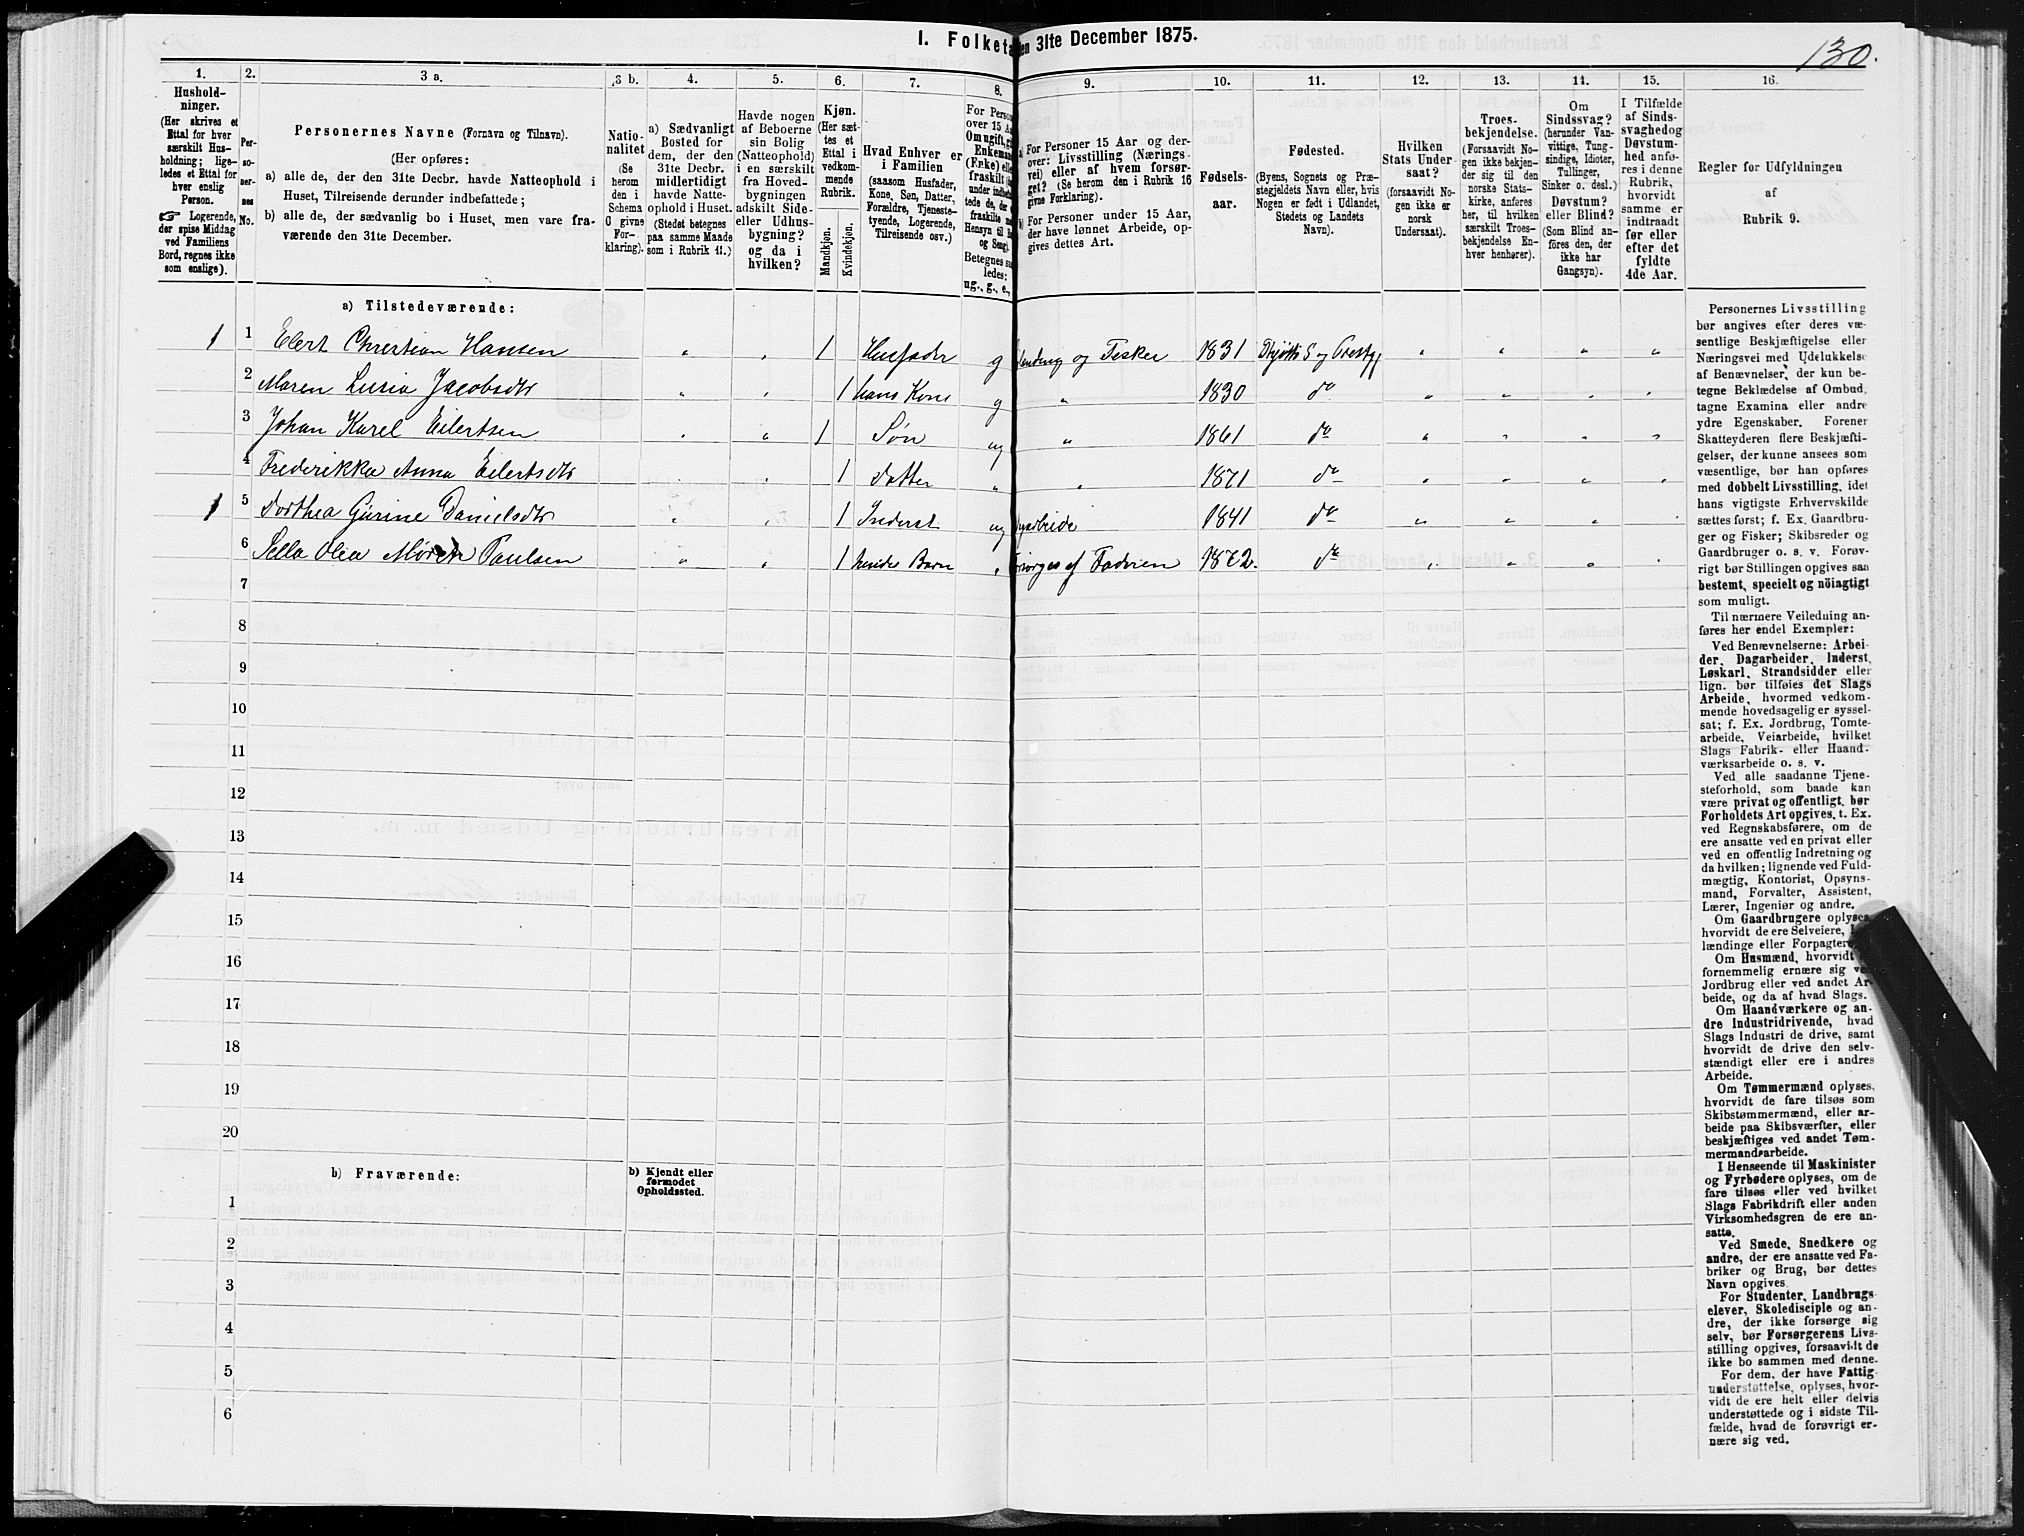 I. Folketa
en 31te December 1875.
130.
1.
2.
3 a.
3 b.
4.
5.
6.
7.
8.
9.
10.
11.
12.
13.
14.
15.
16.
Hushold-
ninger.
(Her skrives et
Ettal for hver
særskilt Hus-
holdning; lige-
ledes et Ettal for
hver enslig
Person.
☞ Logerende,
der spise Middag
ved Familiens
Bord, regnes ikke
som enslige).
Per-
so-
ner-
nes
No.
Personernes Navne (Fornavn og Tilnavn).
(Her opføres:
a) alle de, der den 31te Decbr. havde Natteophold i
Huset, Tilreisende derunder indbefattede;
b) alle de, der sædvanlig bo i Huset, men vare fra-
værende den 31te December.
Natio-
nalitet
(Se
herom
den i
Schema
O givne
For-
klaring).
a) Sædvanligt
Bosted for
dem, der den
31te Decbr.
midlertidigt
havde Natte-
ophold i Huset.
(Stedet betegnes
paa samme Maade
som i Rubrik 11.)
Havde nogen
af Beboerne
sin Bolig
(Natteophold)
i en særskilt
fra Hoved-
bygningen
adskilt Side-
eller Udhus-
bygning?
og da i
hvilken?
Kjøn.
(Her sæt-
tes et
Ettal i
vedkom-
mende
Rubrik.
Mandkjøn.
Kvindekjøn.
Hvad Enhver er
i Familien
(saasom Husfader,
Kone, Søn, Datter,
Forældre, Tjeneste-
tyende, Logerende,
Tilreisende osv.)
For Perso
over 15 A
Om ugift, g
Enkeman
(Fæke) elle
fraskilt
Betegnes sa
ledes:
ug., g., e.,
a) For Personer 15 Aar og der-
over: Livsstilling (Nærings-
vei) eller af hvem forsør-
get? (Se herom den i Rubrik 16
givne Forklaring).
b) For Personer under 15 Aar,
der have lønnet Arbeide, op-
gives dettes Art.
Fødsels-
aar.
Fødested.
(Byens, Sognets og Præ-
stegjeldets Navn eller, hvis
Nogen er født i Udlandet,
Stedets og Landets
Navn).
Hvilken
Stats Under-
saat?
(forsaavidt No-
gen ikke er
norsk
Undersaat).
Troes-
bekjendelse.
(Forsaavidt No-
gen ikke bekjen-
der sig til den
norske Stats-
kirke, anføres
her, til hvilken
særskilt Troes-
bekjendelse En-
hver henhører).
Om
Sindssvag?
(herunder Van-
vittige, Tung-
sindige, Idioter,
Tullinger,
Sinker o. desl.)
Døvstum?
eller Blind?
(Som Blind an-
føres den, der
ikke har
Gangsyn).
I Tilfælde
af Sinds-
svaghed og
Døvstum-
hed anfø-
res i denne
Rubrik,
hvorvidt
samme er
indtraadt
før eller
efter det
fyldte
4de Aar.
Regler for Udfyldningen
af
Rubrik 9.
a) Tilstedeværende:
1 1 Elert Christian Hansen " " 1 Husfader g og Fisker 1831 " " " "
2 Maren Lusia Jacobsdtr " " 1 hans Kone g " 1830 do " " " "
3 Johan Karel Eilertsen " " 1 Søn ug " 1861 do " " " "
4 Frederikke Anna Eilertsdtr " " 1 datter " " 1871 do " " " "
1 5 Dorthea Gurine Danielsdtr " " 1 Inderst ug 1841 do " " " "
6 Olea Paulsen " " 1 hendes Barn " af Faderen 1872. do " " " "
7
8
9
10
11
12
13
14
15
16
17
18
19
20
b) Fraværende:
b) Kjendt eller
formodet
Opholdssted.
1
2
3
4
5
6
Personernes Livsstilling
bør angives efter deres væ-
sentlige Beskjæftigelse eller
Næringsvei med Udelukkelse
af Benævnelser, der kun be-
tegne Beklædelse af Ombud,
tagne Examina eller andre
ydre Egenskaber. Forener
Skatteyderen flere Beskjæfti-
gelser, der kunne ansees som
væsentlige, bør han opføres
med dobbelt Livsstilling, idet
hans vigtigste Erhvervskilde
sættes først; f. Ex. Gaardbru-
ger og Fisker; Skibsreder og
Gaardbruger o. s. v. Forøv-
rigt bør Stillingen opgives saa
bestemt, specielt og nöiagtigt
som muligt.
Til nærmere Veiledning an-
føres her endel Exempler:
Ved Benævnelserne: Arbei-
der, Dagarbeider, Inderst,
Løskarl, Strandsidder eller
lign. bør tilføies det Slags
Arbeide, hvormed vedkom-
mende hovedsagelig er syssel-
sat; f. Ex. Jordbrug, Tomte-
arbeide, Veiarbeide, hvilket
Slags Fabrik- eller Haand-
værksarbeide o. s. v.
Ved alle saadanne Tjene-
steforhold, som baade kan
være privat og offentligt, bør
Forholdets Art opgives, t. Ex.
ved Regnskabsførere, om de
ere ansatte ved en privat eller
ved en offentlig Indretning og
da hvilken; lignende ved Fuld-
mægtig, Kontorist, Opsyns-
mand, Forvalter, Assistent,
Lærer, Ingeniør og andre.
Om Gaardbrugere oplyses,
hvorvidt de ere Selveiere,
lændinge eller Forpagtere.
Om Husmænd, hvorvidt
fornemmelig ernære sig ved
Jordbrug eller ved andet Ar-
beide, og da af hvad Slags.
Om Haandværkere og an-
dre Industridrivende, hvad
Slags Industri de drive, samt
hvorvidt de drive den selv-
stændigt eller ere i andres
Arbeide.
Om Tømmermænd oplyses,
hvorvidt de fare tilsøs som
Skibstømmermænd, eller ar-
beide paa Skibsværfter, eller
beskjæftiges ved andet Tøm-
mermandsarbeide.
I Henseende til Maskinister
og Fyrbødere oplyses, om de
fare tilsøs eller ved hvilket
Slags Fabrikdrift eller anden
Virksomhedsgren de ere an-
satte.
Ved Smede, Snedkere og
andre, der ere ansatte ved Fa-
briker og Brug, bør dettes
Navn opgives.
For Studenter, Landbrugs-
elever, Skoledisciple og an-
dre, der ikke forsørge sig
selv, bør Forsørgerens Livs-
stilling opgives, forsaavidt de
ikke bo sammen med denne.
For dem, der have Fattig-
understøttelse, oplyses, hvor-
vidt de ere helt eller delvis
understøttede og i sidste Til-
fælde, hvad de forøvrigt er-
nære sig ved.